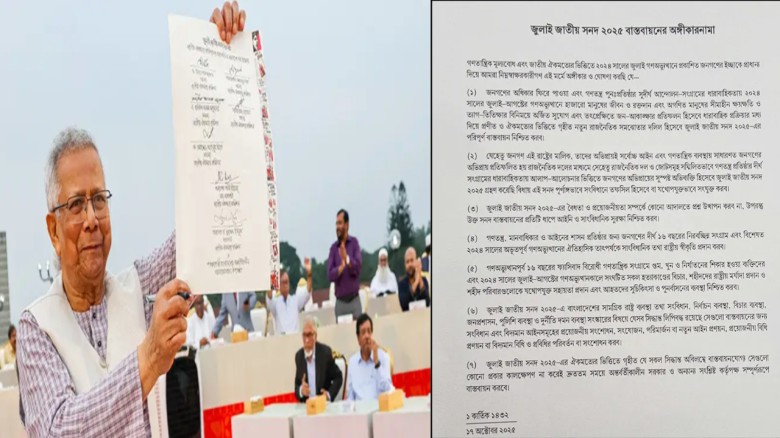 জুলাই জাতীয় সনদ ২০২৫ বাস্তবায়নের অঙ্গীকারনামা
গণতান্ত্রিক মূল্যবোধ এবং জাতীয় ঐকমত্যের ভিত্তিতে ২০২৪ সালের জুলাই গণঅভ্যুত্থানে প্রকাশিত জনগণের ইচ্ছাকে প্রাধান্য
দিয়ে আমরা নিম্নস্বাক্ষরকারীগণ এই মর্মে অঙ্গীকার ও ঘোষণা করছি যে—
(১) জনগণের অধিকার ফিরে পাওয়া এবং গণতন্ত্র পুনঃপ্রতিষ্ঠার সুদীর্ঘ আন্দোলন-সংগ্রামের ধারাবাহিকতায় ২০২৪
সালের জুলাই-আগস্টের গণঅভ্যুত্থানে হাজারো মানুষের জীবন ও রক্তদান এবং অগণিত মানুষের সীমাহীন ক্ষয়ক্ষতি ও
ত্যাগ-তিতিক্ষার বিনিময়ে অর্জিত সুযোগ এবং তৎপ্রেক্ষিতে জন-আকাঙ্ক্ষার প্রতিফলন হিসেবে ধারাবাহিক প্রক্রিয়ার মধ্য
দিয়ে প্রণীত ও ঐকমত্যের ভিত্তিতে গৃহীত নতুন রাজনৈতিক সমঝোতার দলিল হিসেবে জুলাই জাতীয় সনদ ২০২৫-এর
পরিপূর্ণ বাস্তবায়ন নিশ্চিত করব।
(২) যেহেতু জনগণ এই রাষ্ট্রের মালিক, তাদের অভিপ্রায়ই সর্বোচ্চ আইন এবং গণতান্ত্রিক ব্যবস্থায় সাধারণত জনগণের
অভিপ্রায় প্রতিফলিত হয় রাজনৈতিক দলের মাধ্যমে সেহেতু রাজনৈতিক দল ও জোটসমূহ সম্মিলিতভাবে গণতন্ত্র প্রতিষ্ঠার দীর্ঘ
সংগ্রামের ধারাবাহিকতায় আলাপ-আলোচনার ভিত্তিতে জনগণের অভিপ্রায়ের সুস্পষ্ট অভিব্যক্তি হিসেবে জুলাই জাতীয় সনদ
২০২৫ গ্রহণ করেছি বিধায় এই সনদ পূর্ণাঙ্গভাবে সংবিধানে তফসিল হিসেবে বা যথোপযুক্তভাবে সংযুক্ত করব।
(৩) জুলাই জাতীয় সনদ ২০২৫-এর বৈধতা ও প্রয়োজনীয়তা সম্পর্কে কোনো আদালতে প্রশ্ন উত্থাপন করব না, উপরন্তু
উক্ত সনদ বাস্তবায়নের প্রতিটি ধাপে আইনি ও সাংবিধানিক সুরক্ষা নিশ্চিত করব।
(৪) গণতন্ত্র, মানবাধিকার ও আইনের শাসন প্রতিষ্ঠার জন্য জনগণের দীর্ঘ ১৬ বছরের নিরবচ্ছিন্ন সংগ্রাম এবং বিশেষত
২০২৪ সালের অভূতপূর্ব গণঅভ্যুত্থানের ঐতিহাসিক তাৎপর্যকে সাংবিধানিক তথা রাষ্ট্রীয় স্বীকৃতি প্রদান করব।
(৫) গণঅভ্যুত্থানপূর্ব ১৬ বছরের ফ্যাসিবাদ বিরোধী গণতান্ত্রিক সংগ্রামে গুম, খুন ও নির্যাতনের শিকার হওয়া ব্যক্তিদের
এবং ২০২৪ সালের জুলাই-আগস্টের গণঅভ্যুত্থানকালে সংঘটিত সকল হত্যাকাণ্ডের বিচার, শহীদদের রাষ্ট্রীয় মর্যাদা প্রদান ও
শহীদ পরিবারগুলোকে যথোপযুক্ত সহায়তা প্রদান এবং আহতদের সুচিকিৎসা ও পুনর্বাসনের ব্যবস্থা নিশ্চিত করব।
(৬) জুলাই জাতীয় সনদ ২০২৫-এ বাংলাদেশের সামগ্রিক রাষ্ট্র ব্যবস্থা তথা সংবিধান, নির্বাচন ব্যবস্থা, বিচার ব্যবস্থা,
জনপ্রশাসন, পুলিশি ব্যবস্থা ও দুর্নীতি দমন ব্যবস্থা সংস্কারের বিষয়ে যেসব সিদ্ধান্ত লিপিবদ্ধ রয়েছে সেগুলো বাস্তবায়নের জন্য
সংবিধান এবং বিদ্যমান আইনসমূহের প্রয়োজনীয় সংশোধন, সংযোজন, পরিমার্জন বা নতুন আইন প্রণয়ন, প্রয়োজনীয় বিধি
প্রণয়ন বা বিদ্যমান বিধি ও প্রবিধির পরিবর্তন বা সংশোধন করব।
(৭) জুলাই জাতীয় সনদ ২০২৫-এর ঐকমত্যের ভিত্তিতে গৃহীত যে সকল সিদ্ধান্ত অবিলম্বে বাস্তবায়নযোগ্য সেগুলো
কোনো প্রকার কালক্ষেপণ না করেই দ্রুততম সময়ে অন্তর্বর্তীকালীন সরকার ও অন্যান্য সংশ্লিষ্ট কর্তৃপক্ষ সম্পূর্ণরূপে
বাস্তবায়ন করবে।
১ কার্তিক ১৪৩২
১৭ অক্টোবর ২০২৫